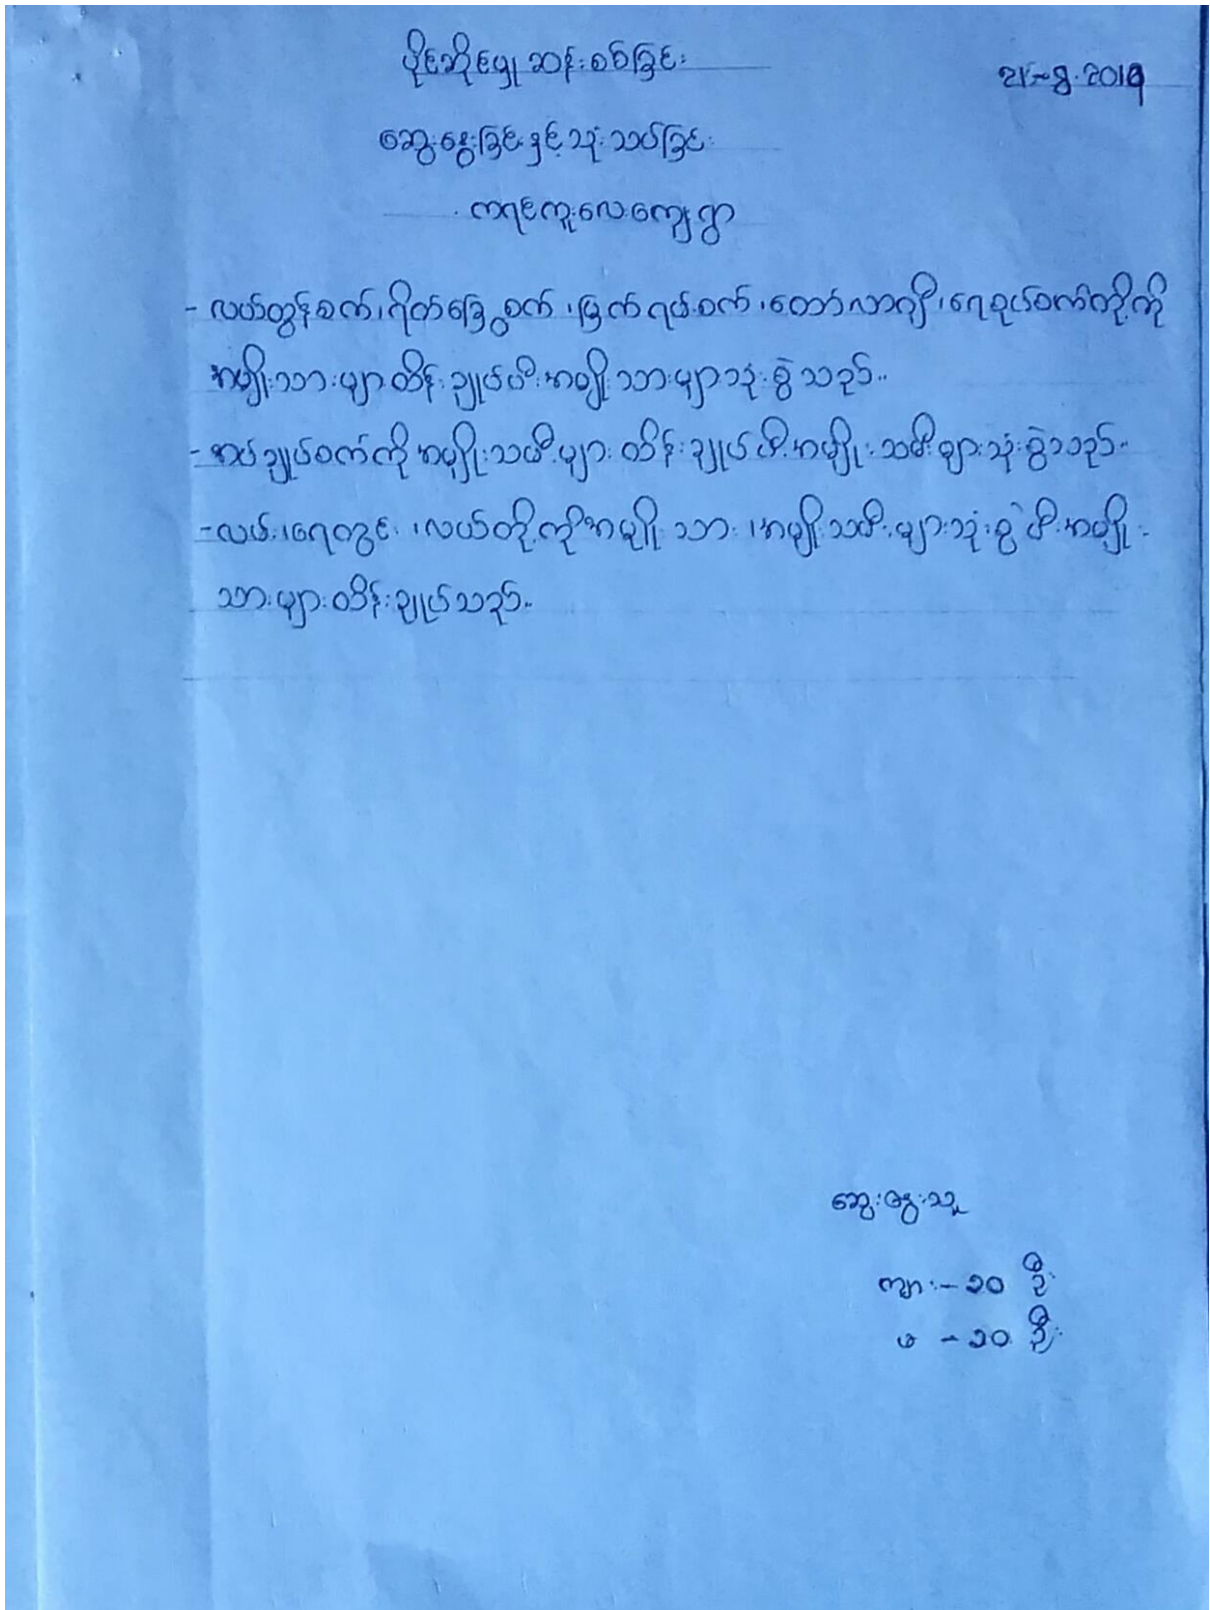 ပိုင်ဆိုင်မှု ဆန်းစစ်ခြင်း
21-8-2019
ဆွေးနွေးခြင်းနှင့် သုံးသပ်ခြင်း
ကရင်ကူးလေးကျေးရွာ
- လယ်ထွန်စက်၊ ရိတ်ခြွေစက်၊ မြက်ရပ်စက်၊ တော်လာဂျီ၊ ရေစုပ်စက်တို့ကို
အမျိုးသားများ ထိန်းချုပ်ပီး အမျိုးသားများ သုံးစွဲသည်။
- အပ်ချုပ်စက်ကို အမျိုးသမီးများ ထိန်းချုပ်ပီး အမျိုးသမီးများ သုံးစွဲသည်။
- လမ်း၊ ရေတွင်း၊ လယ်တို့ကို အမျိုးသား၊ အမျိုးသမီးများ သုံးစွဲပီး အမျိုး
သားများ ထိန်းချုပ်သည်။
ဆွေးနွေးသူ
ကျား - ၁၀ ဦး
မ - ၁၀ ဦး